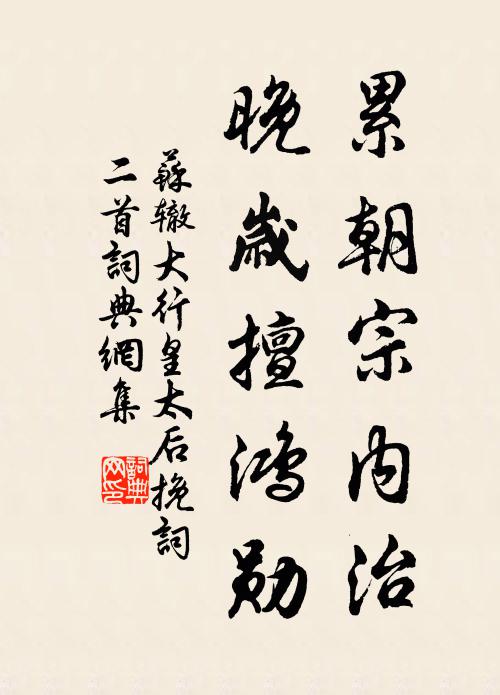 累朝宗内治
晚歲擅鴻勛
蘇辙大行皇太后挽詞
二首詞典網集
詞典网印